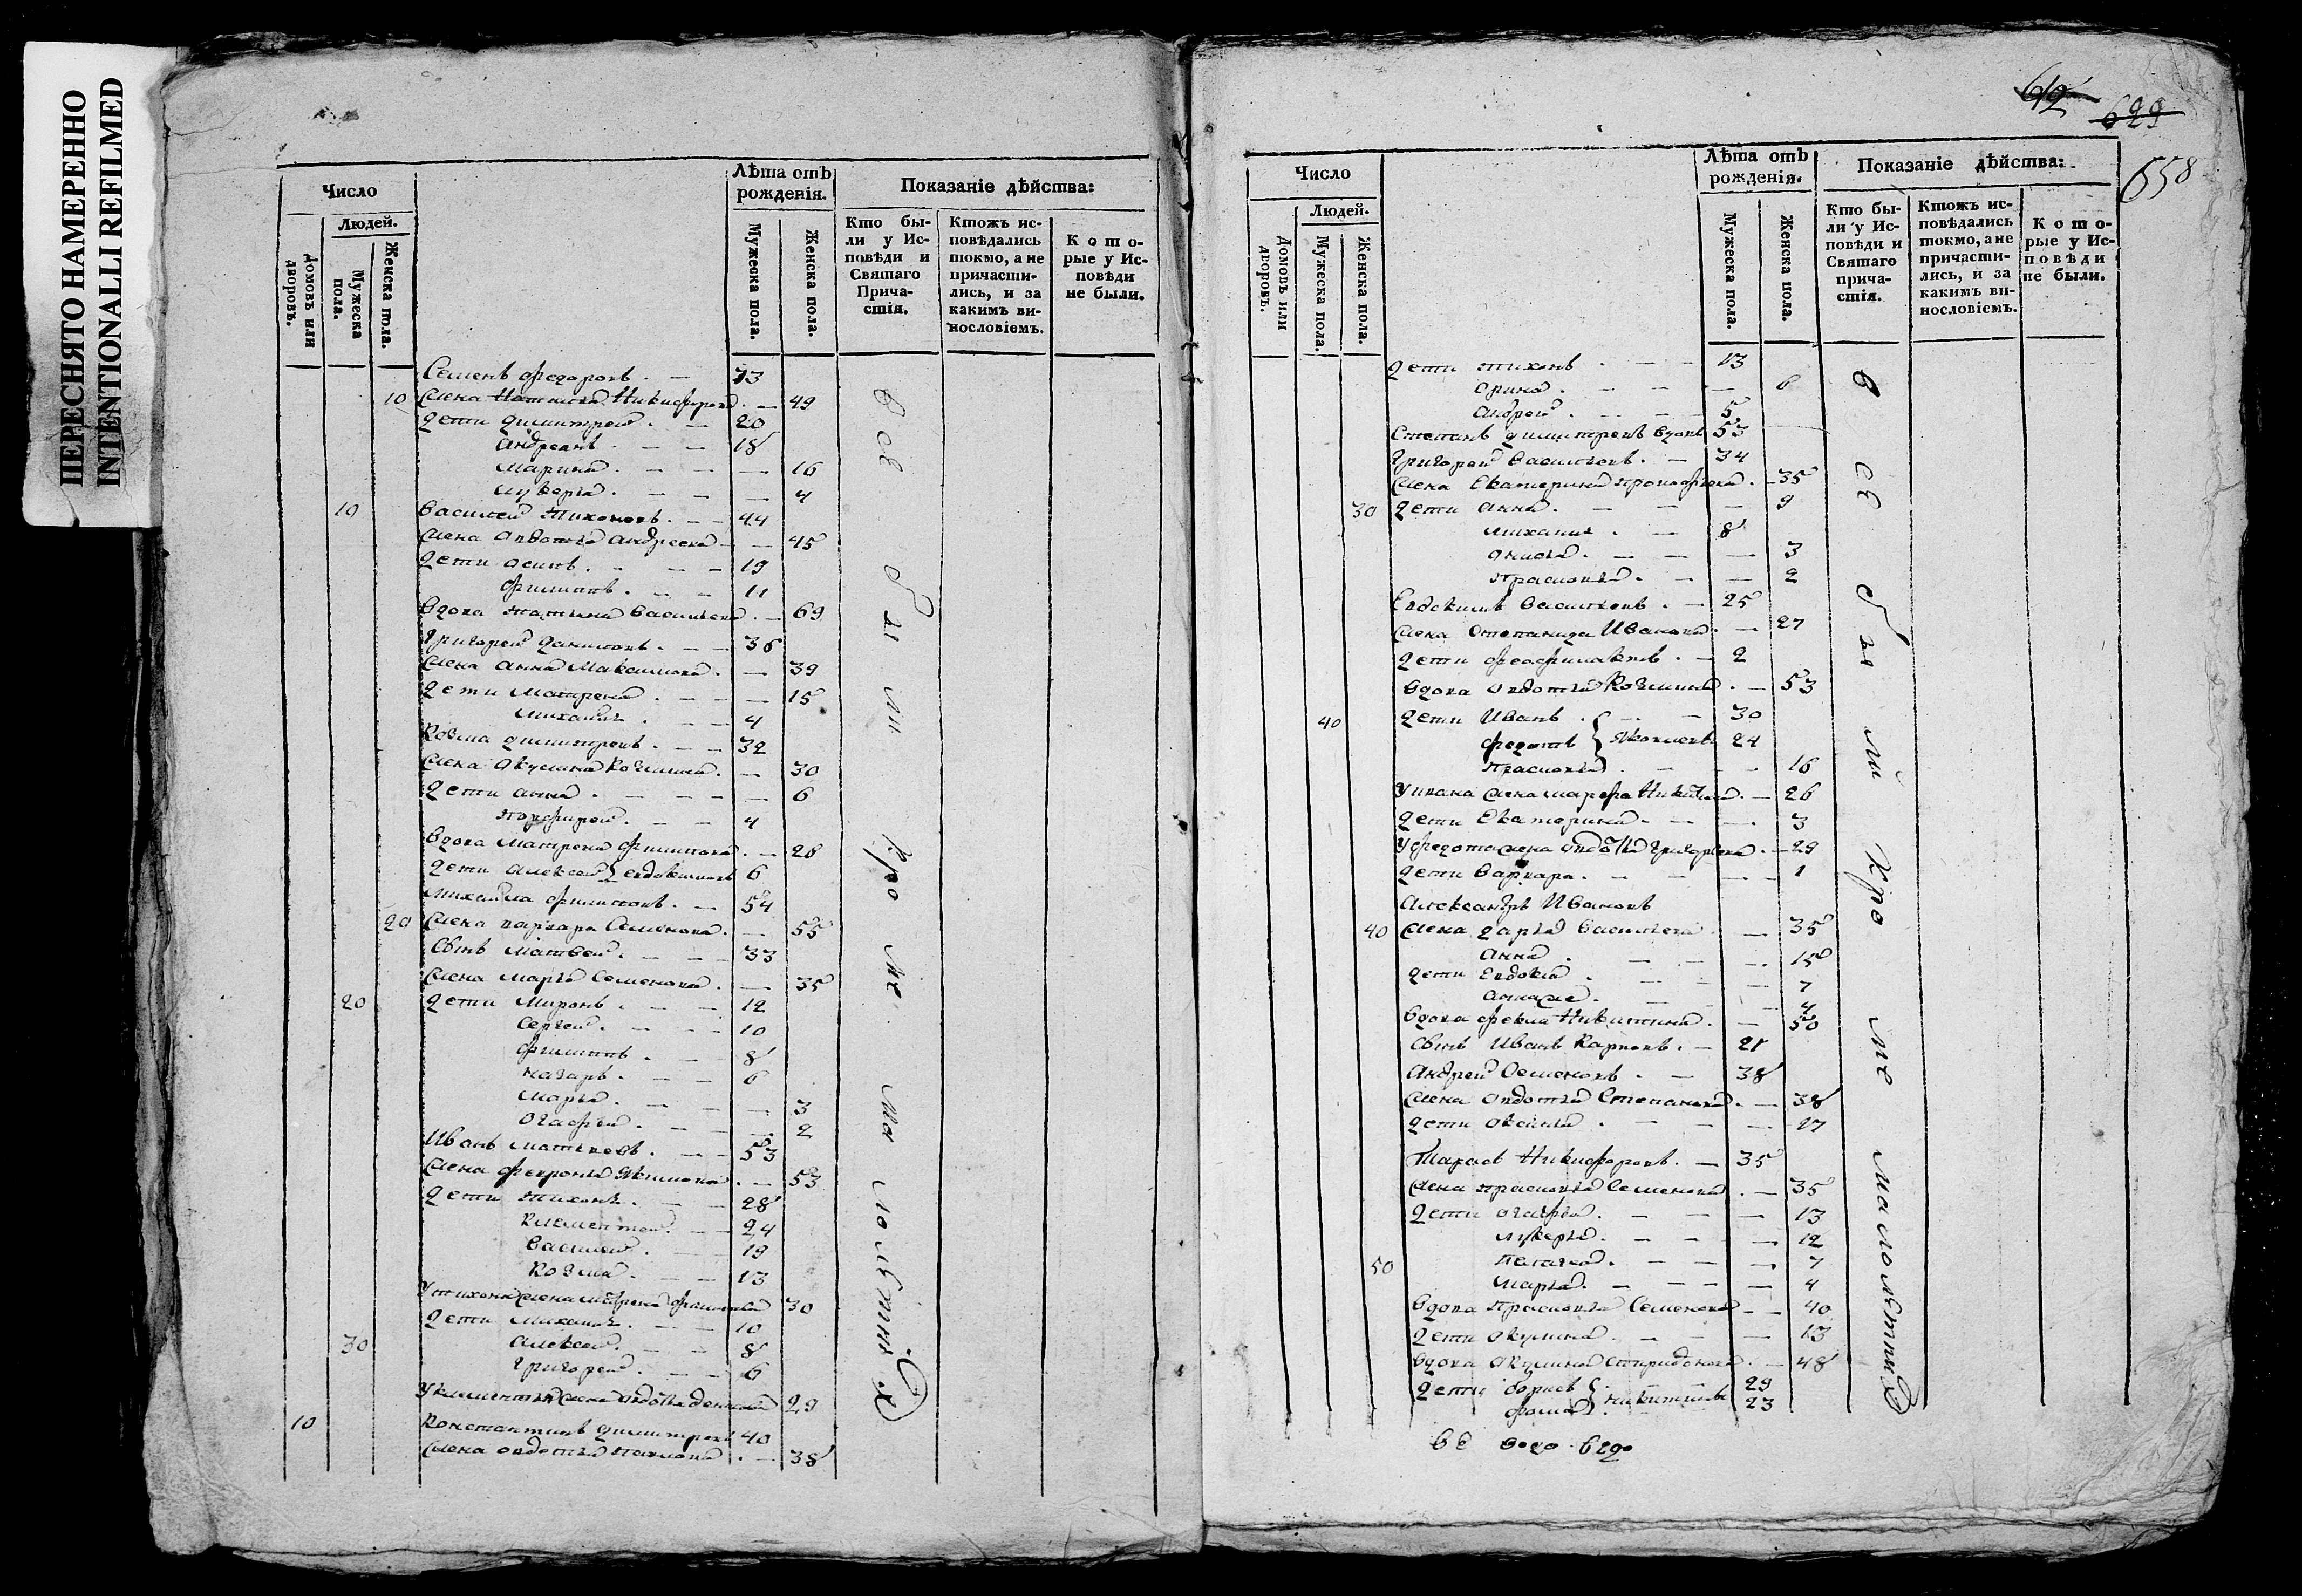 ПЕРЕСНЯТО НАМЕРЕННО
INTENTIONALLI REFILMED
Число
Людей.
Домовъ или дворовъ.
Мужеска пола.
Женска пола.
Лѣта отъ
рожденія.
Мужеска пола.
Женска пола.
Показаніе дѣйства:
Кто бы-
ли у Ис-
повѣди и
Святаго
Прича-
стія.
Ктожъ ис-
повѣдались
токмо, а не
причасти-
лись, и за
какимъ ви-
нословіемъ.
Кото-
рые у Ис-
повѣди
не были.
Семенъ Федоровъ. 73
10 Жена Наталья Никифорова. 49
Дети Димитрей. 20
Андреанъ 18
Марина. 16
Лукерья. 4
10 Василей Тихоновъ. 44
Жена Овдотья Андреева 45
Дети Осипъ. 19
Филипъ. 11
Вдова Татьяна Васильева. 69
Григорей Даниловъ. 36
Жена Анна Максимова. 39
Дети Матрена. 15
Михаилъ. 4
Козма Димитревъ. 32
Жена Окулина Козмина. 30
Дети Анна. 6
Порфирей. 4
Вдова Матрена Филипова. 28
Дети Алексей Евдокимовъ 6
Михайла Филиповъ. 54
20 Жена Варвара Семенова. 55
Сынъ Матвей. 33
Жена Марья Семенова. 35
20 Дети Миронъ. 12
Сергей. 10
Филипъ. 8
Назаръ. 6
Марья. 3
Огафья. 2
Иванъ Матвеевъ. 53
Жена Февронья Якимова. 53
Дети Тихонъ. 28
Клементей. 24
Василей. 19
Козма. 13
У Тихона жена Матрена Филипова 30
Дети Михаилъ. 10
30 Алексей. 8
Григорей. 6
У Клементья жена Овдотья 29
10 Константинъ Димитревъ 40
Жена Овдотья Павлова. 38
все были кроме малолетных
612
629
658
Число
Людей.
Домовъ или дворовъ.
Мужеска пола.
Женска пола.
Лѣта отъ
рожденія.
Мужеска пола.
Женска пола.
Показаніе дѣйства:
Кто бы-
ли у Ис-
повѣди и
Святаго
прича-
стія.
Ктожъ ис-
повѣдались
токмо, а не
причасти-
лись, и за
какимъ ви-
нословіемъ.
Кото-
рые у Ис-
повѣди
не были.
Дети Тихонъ 13
Орина. 6
Андрей. 5
Степанъ Димитревъ вдовъ 53
Григорей Васильевъ. 34
Жена Екатерина Прокофьева. 35
30 Дети Анна. 9
Михаилъ. 8
Онисья. 3
Прасковья. 2
Евдокимъ Васильевъ. 25
Жена Степанида Иванова. 27
Дети Феофилактъ. 2
Вдова Овдотья Козмина. 53
40 Дети Иванъ 30
Федотъ Яковлевы 24
Прасковья 16
У Ивана жена Марфа 26
Дети Екатерина. 3
У Федота жена Овдотья Григорьева. 29
Дети Варвара. 1
Александръ Ивановъ
40 Жена Дарья Васильева 35
Анна. 15
Дети Евдокія. 7
Анна же. 4
Вдова Фекла Никитина. 50
Сынъ Иванъ Карповъ. 21
Андрей Семеновъ. 38
Жена Овдотья Степанова. 38
Дети Оксинья. 17
Тарасъ Никифоровъ. 35
Жена Прасковья Семенова. 35
Дети Огафья. 13
Лукерья. 12
50 Пелагея. 7
Марья. 4
Вдова Прасковья Семенова 40
Дети Окулина. 13
Вдова Окулина Спиридонова. 48
Дети Борисъ 29
Фома Никитины 23
все были кроме малолетных